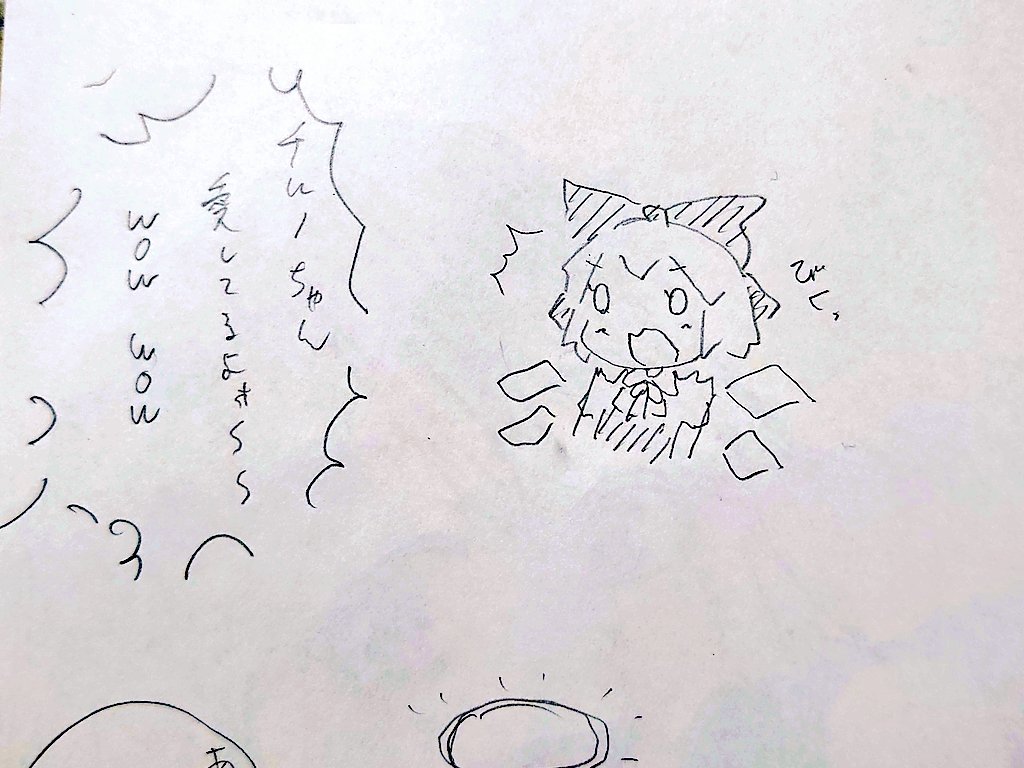 びくっ
チルノちゃん
愛してるよォ〜〜〜
WOW WOW
あ